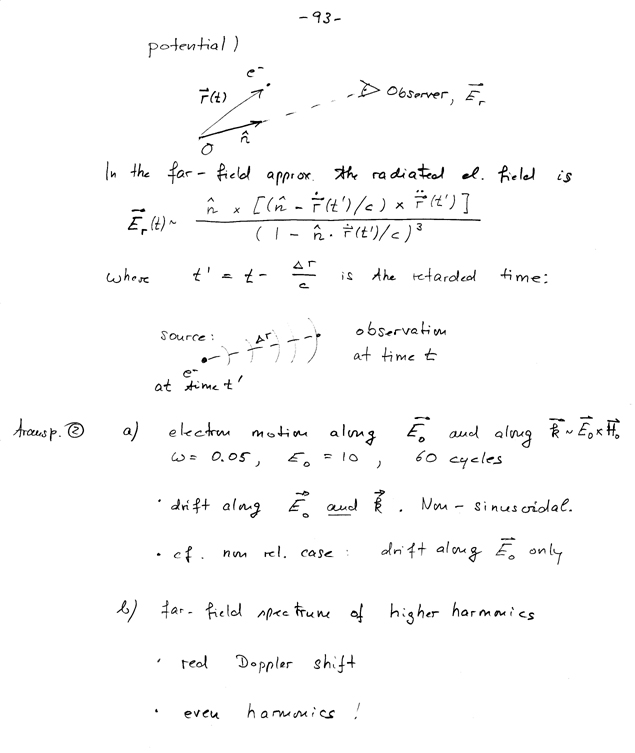 -93-
potential)
e⁻
r⃗(t)
Observer, E⃗ᵣ
n̂
O
In the far-field approx. the radiated el. field is
E⃗ᵣ(t) ~ n̂ × [(n̂ - ṙ⃗(t')/c) × r̈⃗(t')] / (1 - n̂ · ṙ⃗(t')/c)³
where t' = t - Δr/c is the retarded time:
source: Δr observation
e⁻ at time t
at time t'
Transp. ② a) electron motion along E⃗₀ and along k⃗ ~ E⃗₀ × H⃗₀
ω = 0.05, E₀ = 10, 60 cycles
· drift along E⃗₀ and k⃗. Non-sinusoidal.
· cf. non rel. case: drift along E⃗₀ only
b) far-field spectrum of higher harmonics
· red Doppler shift
· even harmonics!